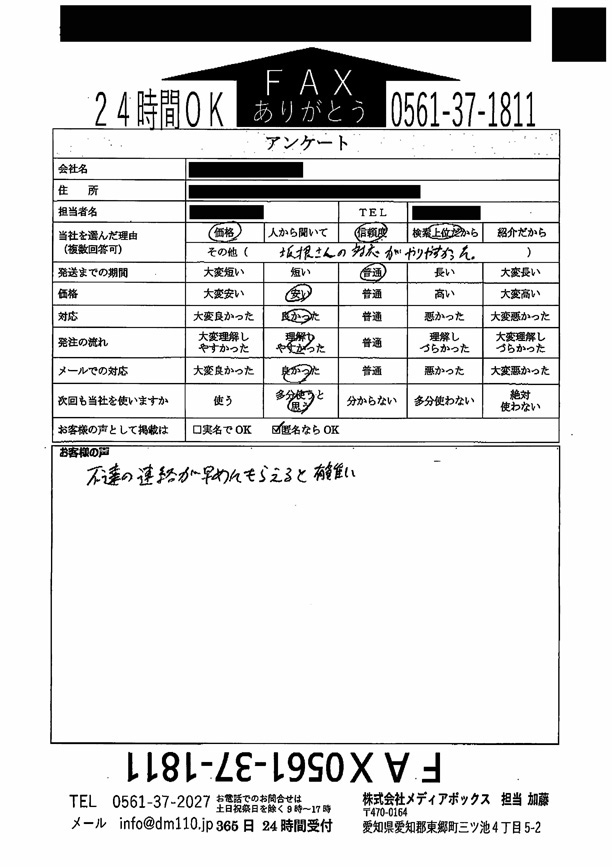 FAX
ありがとう
24時間OK 0561-37-1811
アンケート
会社名
住 所
担当者名 TEL
当社を選んだ理由 (複数回答可) 価格 人から聞いて 信頼度 検索上位だから 紹介だから
その他 ( 坂根さんの対応がやりやすかった。 )
発送までの期間 大変短い 短い 普通 長い 大変長い
価格 大変安い 安い 普通 高い 大変高い
対応 大変良かった 良かった 普通 悪かった 大変悪かった
発注の流れ 大変理解しやすかった 理解しやすかった 普通 理解しづらかった 大変理解しづらかった
メールでの対応 大変良かった 良かった 普通 悪かった 大変悪かった
次回も当社を使いますか 使う 多分使うと思う 分からない 多分使わない 絶対使わない
お客様の声として掲載は □実名でOK ☑匿名ならOK
お客様の声
不達の連絡が早めにもらえると有難い
FAX0561-37-1811
TEL 0561-37-2027 お電話でのお問合せは土日祝祭日を除く9時〜17時
メール info@dm110.jp 365日24時間受付
株式会社メディアボックス 担当 加藤
〒470-0164
愛知県愛知郡東郷町三ツ池4丁目5-2